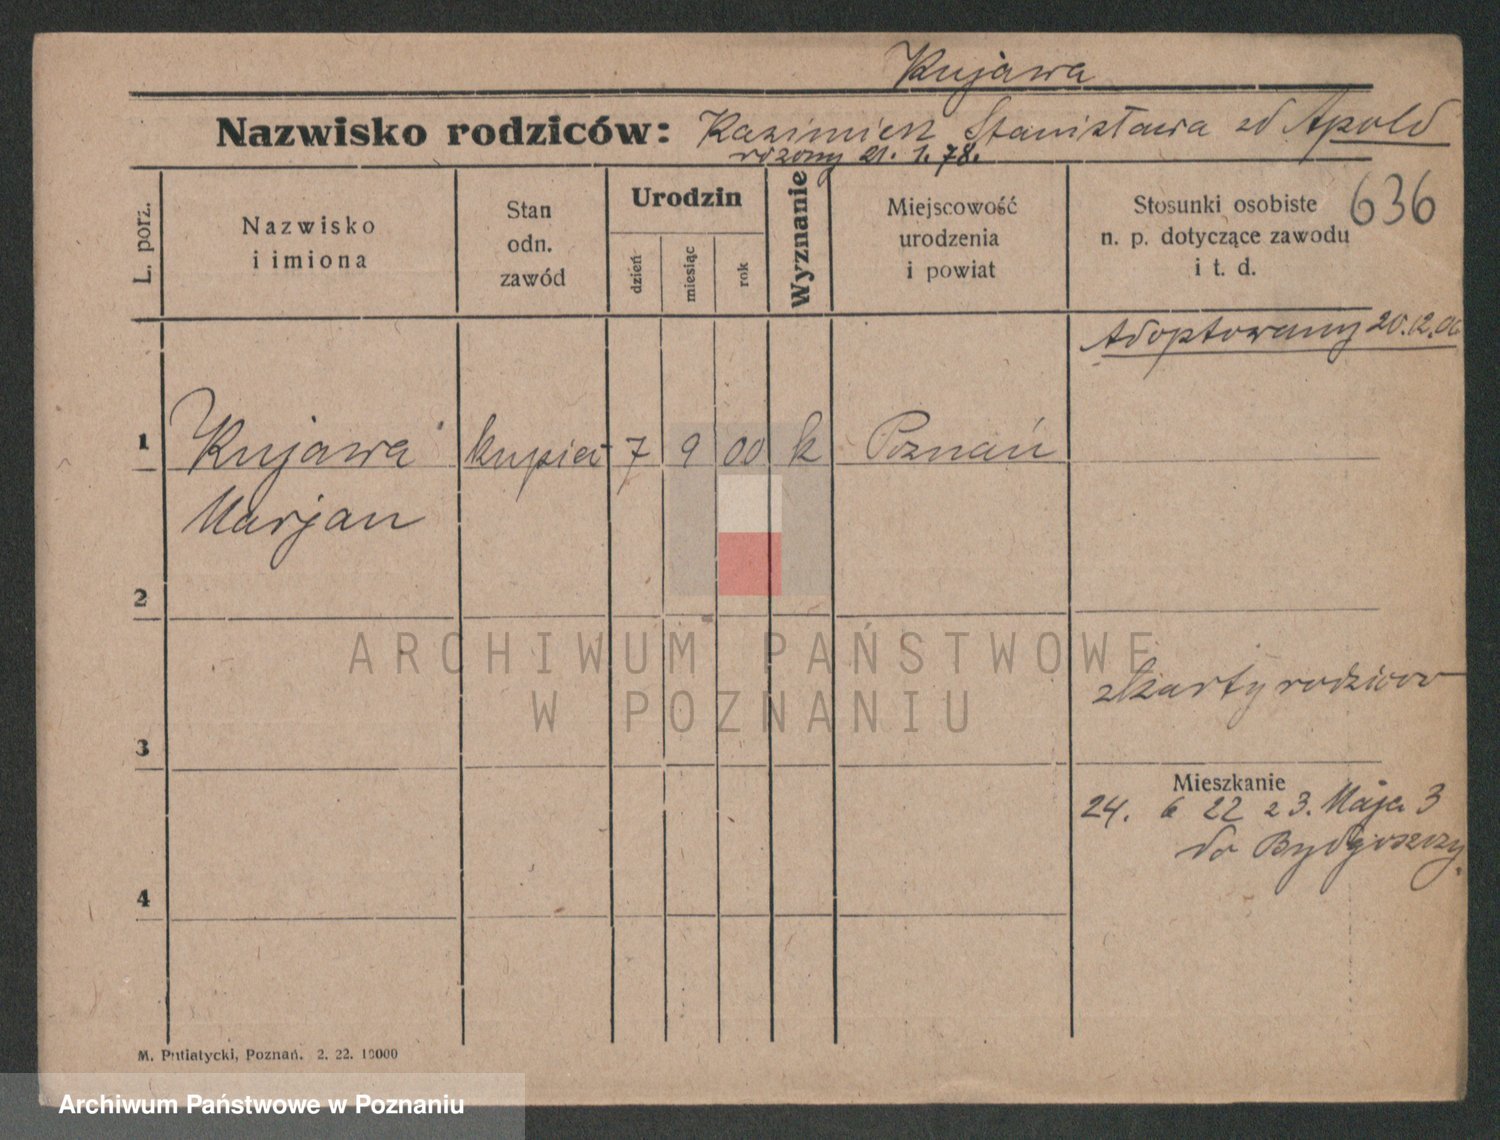 Kujawa
Nazwisko rodziców: Kazimierz Stanisława zd Apold
rozony 21. 1. 78.
L. porz.
Nazwisko
i imiona
Stan
odn.
zawód
Urodzin
dzień
miesiąc
rok
Wyznanie
Miejscowość
urodzenia
i powiat
Stosunki osobiste
n. p. dotyczące zawodu
i t. d.
636
Adoptowany 20.12.06
1 Kujawa kupiec 7 9 00 k Poznań
Marjan
2
ARCHIWUM PAŃSTWOWE
W POZNANIU
z karty rodziców
3
Mieszkanie
24. 6 22 z 3. Maja 3
do Bydgoszczy.
4
M. Putiatycki, Poznań. 2. 22. 10000
Archiwum Państwowe w Poznaniu